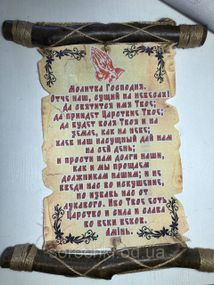 Молитва Господня.
Отче наш, сущий на небесах!
Да святится имя Твое;
да приидет Царствие Твое;
да будет воля Твоя и на
земле, как на небе;
хлеб наш насущный дай нам
на сей день;
и прости нам долги наши,
как и мы прощаем
должникам нашим; и не
введи нас во искушение,
но избавь нас от
лукавого. Ибо Твое есть
Царство и сила и слава
во веки веков.
Амінь.